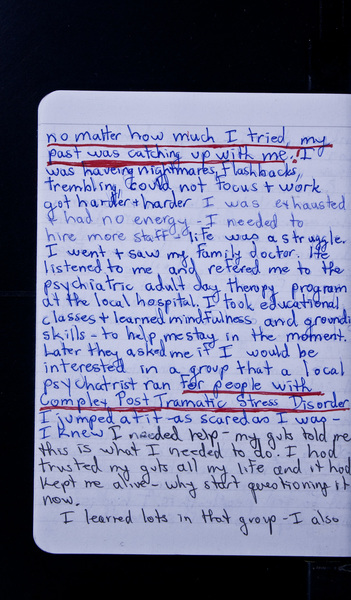 no matter how much I tried, my
past was catching up with me! I
was haveing nightmares, flashbacks,
trembling, could not focus + work
got harder + harder I was exhausted
+ had no energy - I needed to
hire more staff - life was a struggle.
I went + saw my family doctor. He
listened to me and refered me to the
psychiatric adult day therapy program
at the local hospital. I took educational
classes + learned mindfulness and groundi
skills - to help me stay in the moment.
Later they asked me if I would be
interested in a group that a local
psychatrist ran for people with
Complex Post Tramatic Stress Disorder
I jumped at it - as scared as I was -
I knew I needed help - my guts told me
this is what I needed to do. I had
trusted my guts all my life and it had
kept me alive - why start questioning it
now.
I learned lots in that group - I also